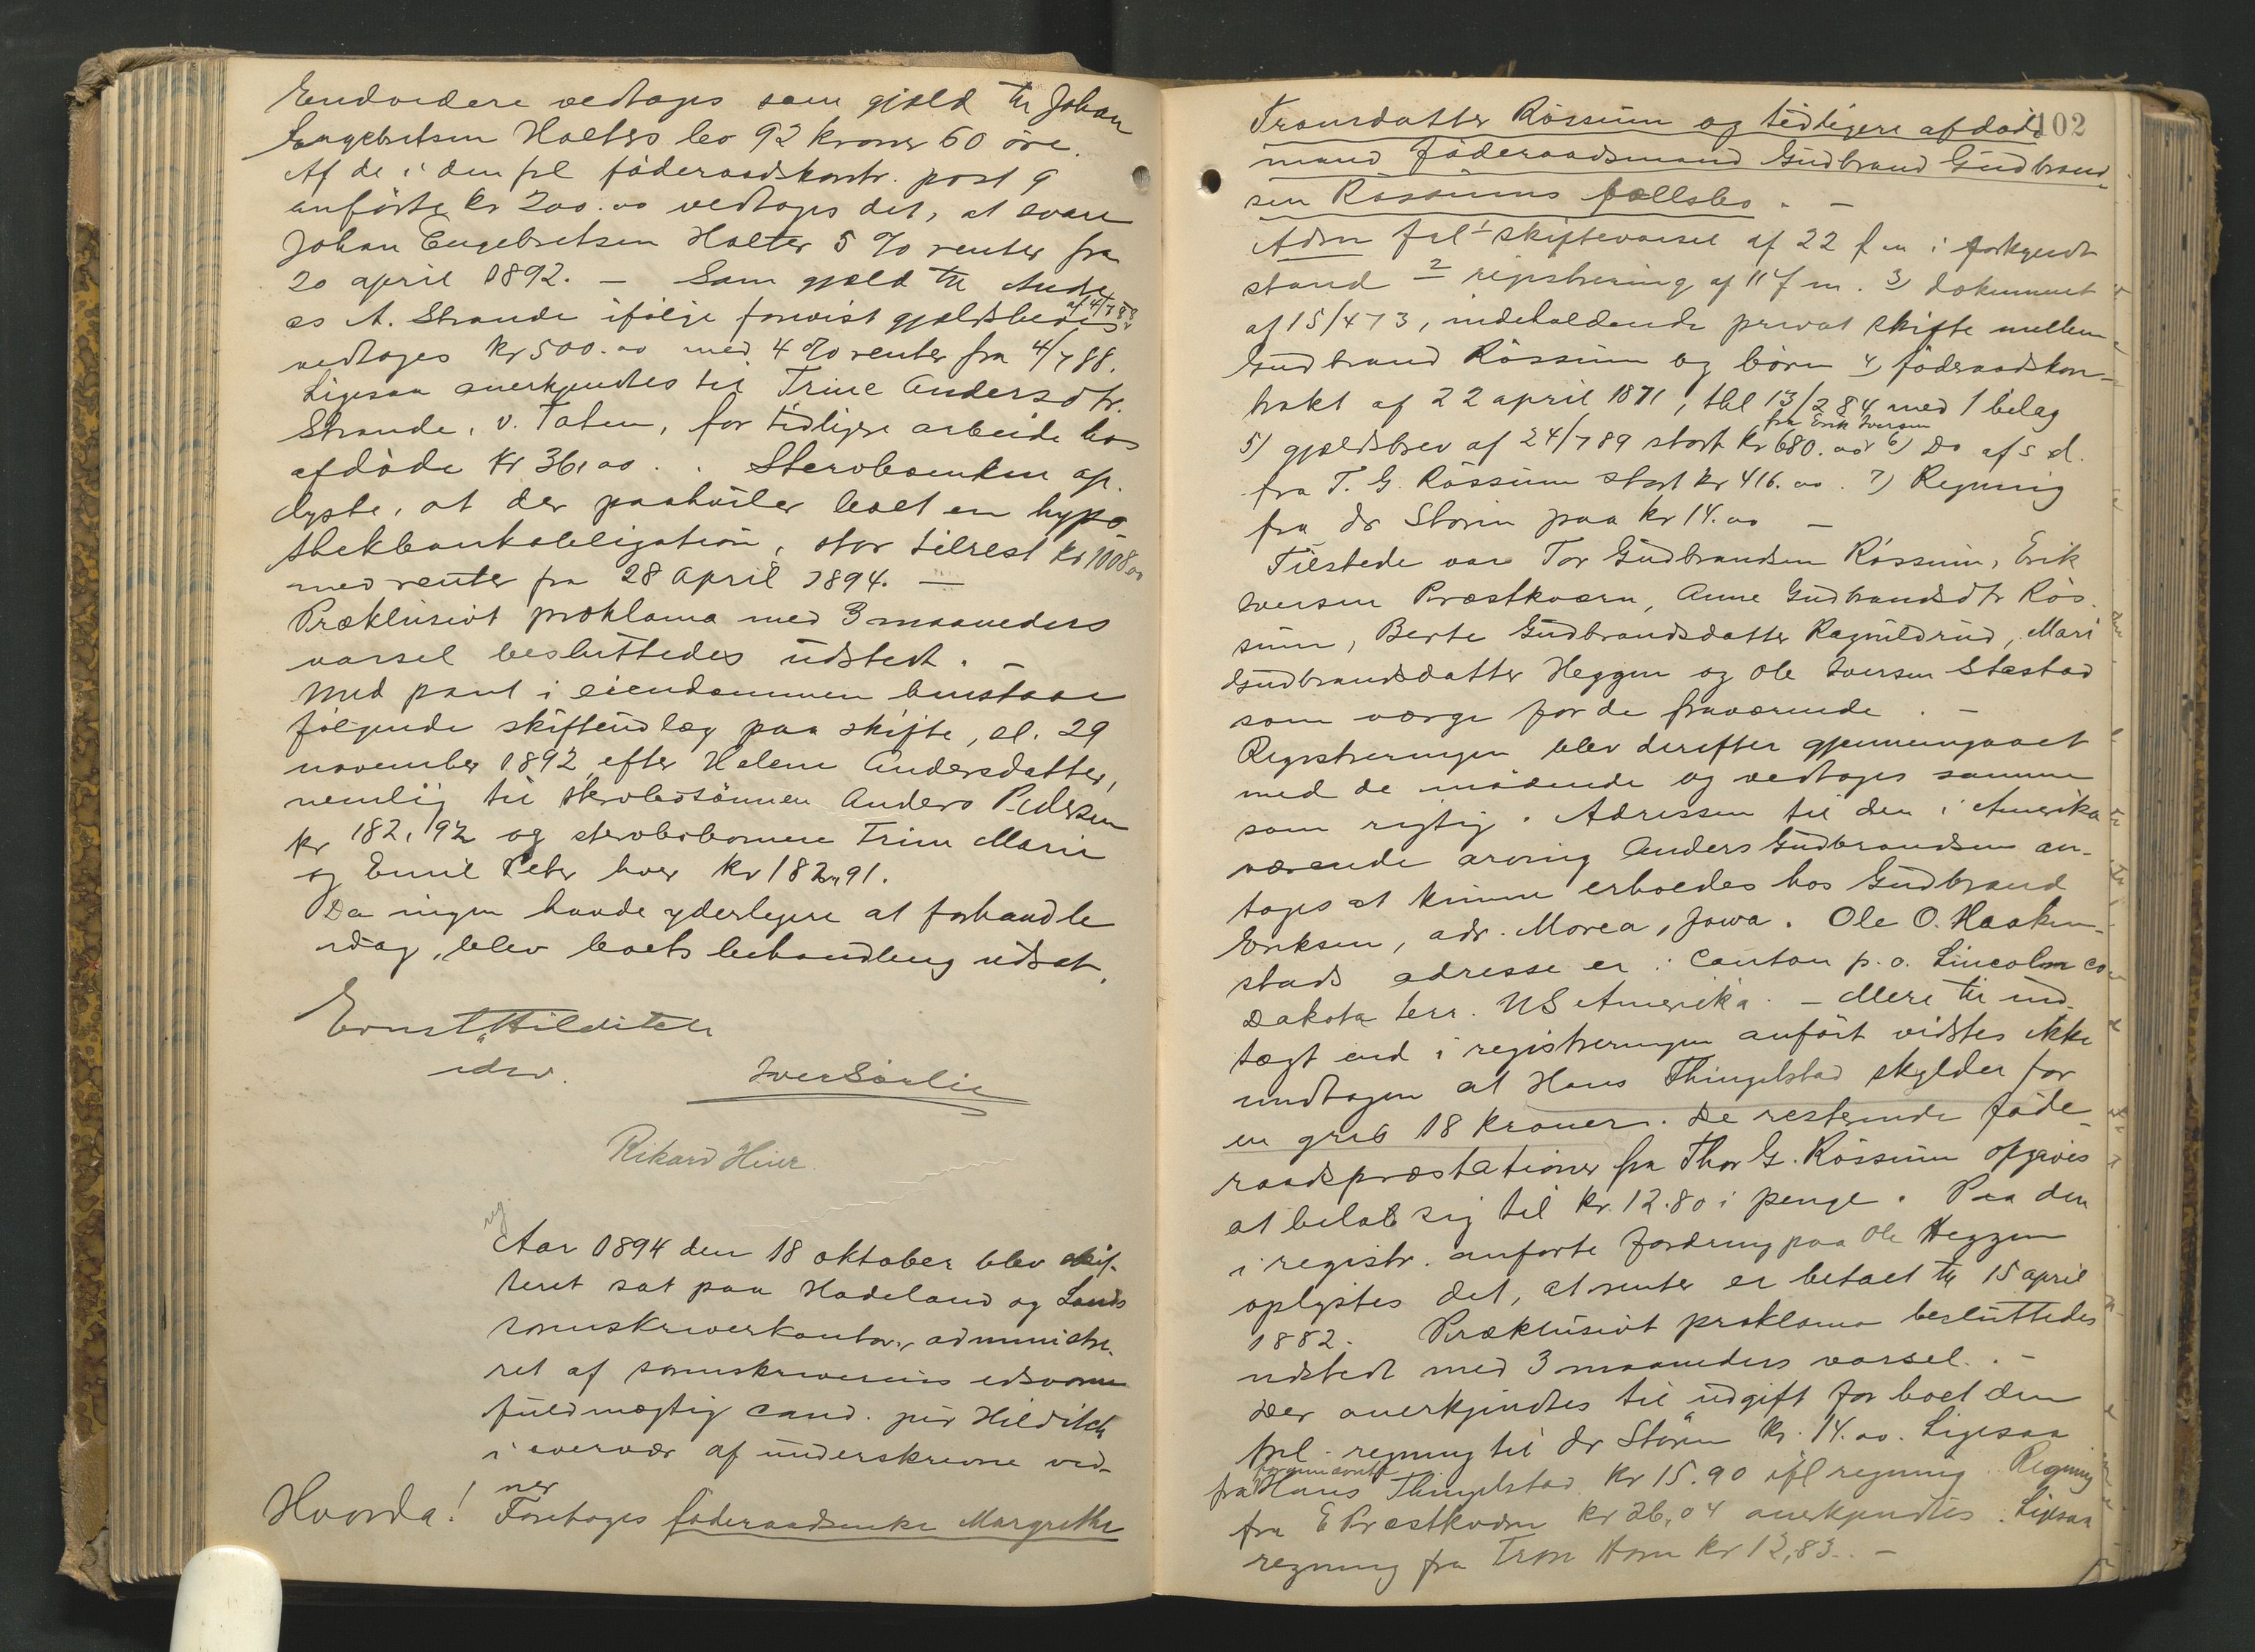 Endvidere vedtoges som gjæld til Johan
Engebretsen Halters bo 92 kroner 60 öre.
Af de i den frl föderaadskontr. post 9
anförte kr 200.00 vedtoges det, at svare
Johan Engebretsen Halter 5 % renter fra
20 april 1892. — Som gjæld til Andr
af 4/7 88
as A. Strande ifölge forevist gjældsbevis
vedtoges kr 500.00 med 4 % renter fra 4/7 88.
Ligesaa anerkjendtes til Trine Andersdtr.
Strande, v. Taten, for tidligere arbeide hos
afdöde kr 36,00. Stervboenken op-
lyste, at der paahviler boet en hypo
thekbankobligation, stor tilrest kr 1008,00
med renter fra 28 april 1894. —
Præklusivt proklama med 3 maaneders
varsel besluttedes udstedt. —
Med pant i eiendommen henstaar
fölgende skifteudlæg paa skifte, sl. 29
november 1892 efter Helene Andersdatter,
nemlig til stervbosönnen Anders Pedersen
kr 182,92 og stervbobörnene Trine Marie
og Emil Peter hver kr 182,91.
Da ingen havde yderligere at forhandle
idag, blev boets behandling udsat.
Ernst Hilditch
edsv.
Iver Sörlie
Rikard Hiier
reg
Aar 1894 den 18 oktober blev skif-
teret sat paa Hadeland og Lands
sorenskriverkontor, administre-
ret af sorenskriverens edsvorne
fuldmægtig cand. jur Hilditch
i overvær af underskrevne vid-
ner
Hvorda! Foretoges föderaadsenke Margrethe
102
Tronsdatter Rössum og tidligere afdöde
mand föderaadsmand Gudbrand Gudbrand-
sen Rössums fællesbo. —
Adm frl 1 skiftevarsel af 22 f m i forkyndt
stand 2 registrering af 11 f m. 3) dokument
af 15/4 73, indeholdende privat skifte mellem
Gudbrand Rössum og börn 4) föderaadskon-
trakt af 22 april 1871, tbl 13/2 84 med 1 belag
fra Erik Iversen
5) gjældsbrev af 24/7 89 stort kr 680.00 6) Do af s d.
fra T. G. Rössum stort kr 416.00. 7) Regning
fra dr Storm paa kr 14.00 —
Tilstede var Tor Gudbrandsen Rössum, Erik
Iversen Præstkvern, Anne Gudbrandsdtr Rös-
sum, Berte Gudbrandsdatter Ragnildrud, Mari
Gudbrandsdatter Heggen og Ole Iversen Stastad
som værge for de fraværende. —
Registreringen blev derefter gjennemgaaet
med de mödende og vedtoges samme
som rigtig. Adressen til den i Amerika
værende arving Anders Gudbrandsen an-
toges at kunne erholdes hos Gudbrand
Eriksen, adr. Morea, Jowa. Ole O. Haaken-
stads adresse er: Canton p.o. Lincoln co
Dakota terr. US Amerika. — Mere til ind-
tægt end i registreringen anfört vidstes ikke
undtagen at Hans Thingelstad skylder for
en gris 18 kroner. De resterende föde-
raadspræstationer fra Thor G. Rössum opgaves
at belöb sig til kr. 12.80 i penge. Paa den
i registr. anförte fordring paa Ole Heggen
oplystes det, at renter er betalt til 15 april
1882. Præklusivt proklama besluttedes
udstedt med 3 maaneders varsel. —
Der anerkjendtes til udgift for boet den
frl. regning til dr Storm kr. 14.00. Ligesaa
fra Hans Thingelstad kr 15.90 ifl regning. Regning
fra E Præstkvern kr 26,04 anerkjendtes. Ligesaa
regning fra Tron Horn kr 12,83. —